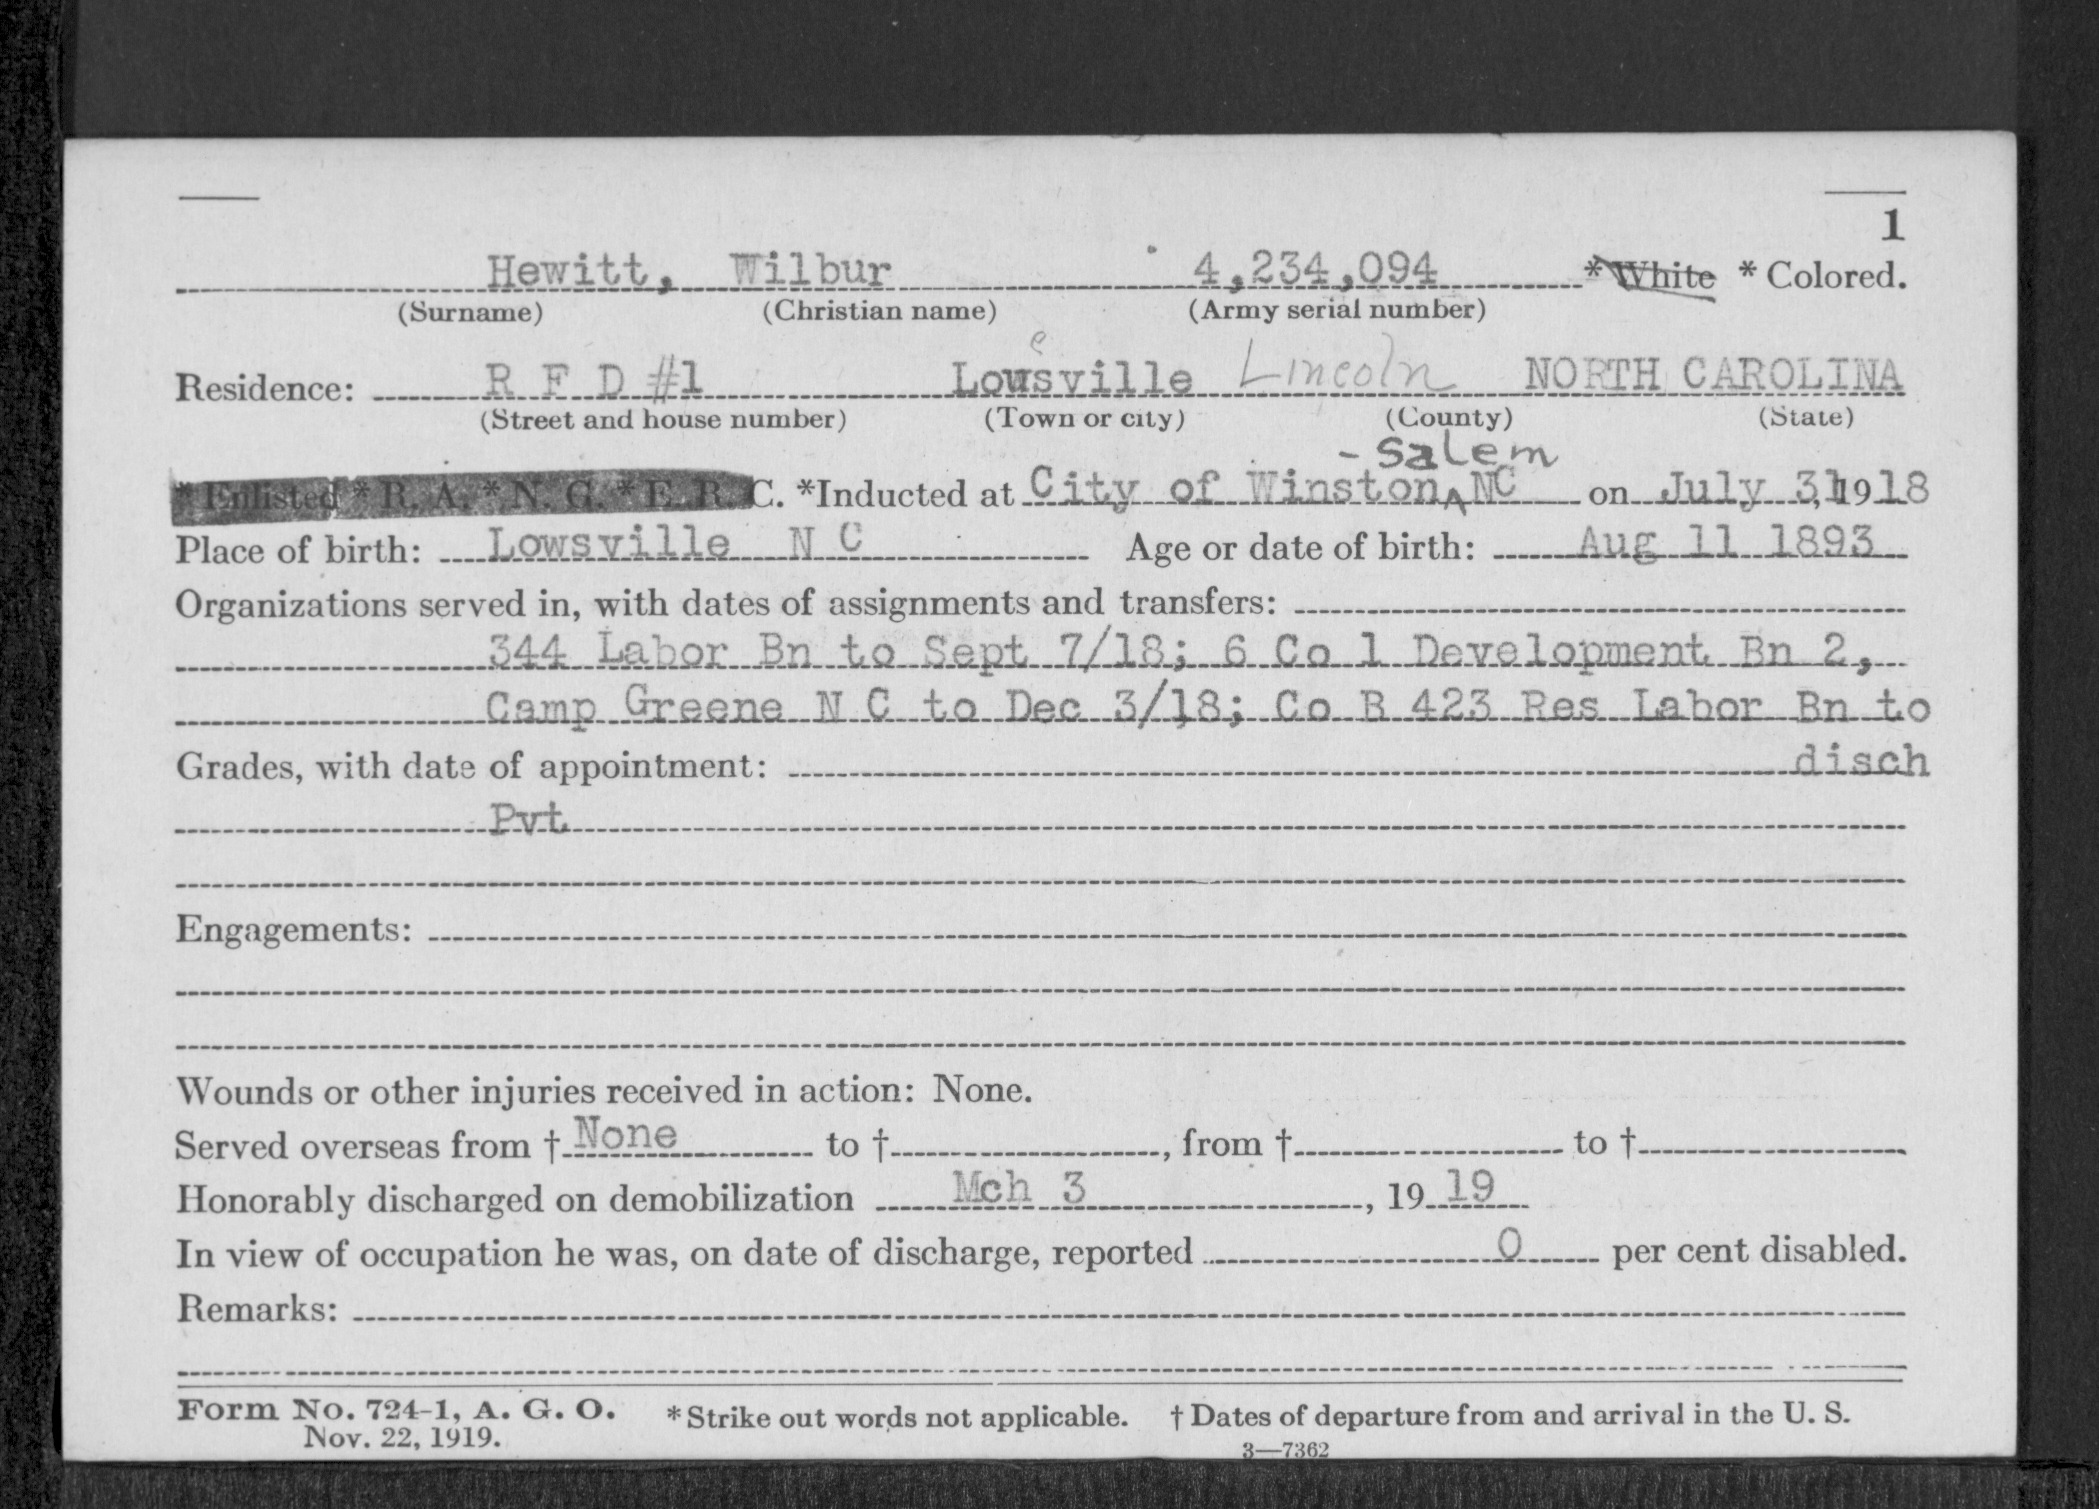 1
Hewitt, Wilbur 4,234,094 *White * Colored.
(Surname) (Christian name) (Army serial number)
e
Residence: R F D #1 Lowsville Lincoln NORTH CAROLINA
(Street and house number) (Town or city) (County) (State)
- Salem
* Enlisted * R. A. * N. G. * E. R. C. *Inducted at City of Winston NC on July 31, 1918
Place of birth: Lowsville N C Age or date of birth: Aug 11 1893
Organizations served in, with dates of assignments and transfers:
344 Labor Bn to Sept 7/18; 6 Co 1 Development Bn 2,
Camp Greene N C to Dec 3/18; Co B 423 Res Labor Bn to
Grades, with date of appointment: disch
Pvt
Engagements:
Wounds or other injuries received in action: None.
Served overseas from † None to † , from † to †
Honorably discharged on demobilization Mch 3 , 19 19
In view of occupation he was, on date of discharge, reported 0 per cent disabled.
Remarks:
Form No. 724-1, A. G. O. * Strike out words not applicable. † Dates of departure from and arrival in the U. S.
Nov. 22, 1919. 3—7362